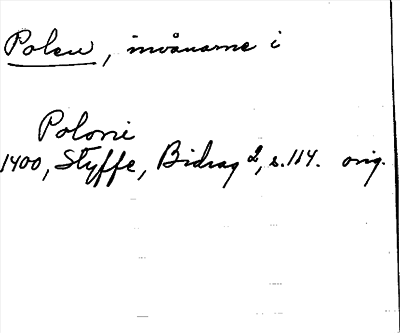 Polen, invånarne i
Poloni
1400, Styffe, Bidrag 2, s. 114. orig.